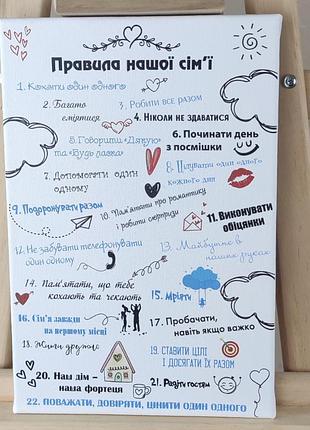 Правила нашої сім'ї
1. Кохати один одного
2. Багато
сміятися
3. Робити все разом
4. Ніколи не здаватися
5. Говорити «Дякую»
та «Будь ласка»
6. Починати день
з посмішки
7. Допомогати один
одному
8. Цілувати один одного
кожного дня
9. Подорожувати разом
10. Пам'ятати про романтику
і робити сюрпризи
11. Виконувати
обіцянки
12. Не забувати телефонувати
один одному
13. Майбутнє в
наших руках
14. Пам'ятати, що тебе
кохають та чекають
15. Мріяти
16. Сім'я завжди
на першому місці
17. Пробачати,
навіть якщо важко
18. Жити дружно
19. Ставити цілі
і досягати їх разом
20. Наш дім -
наша фортеця
21. Радіти гостям
22. Поважати, довіряти, цінити один одного